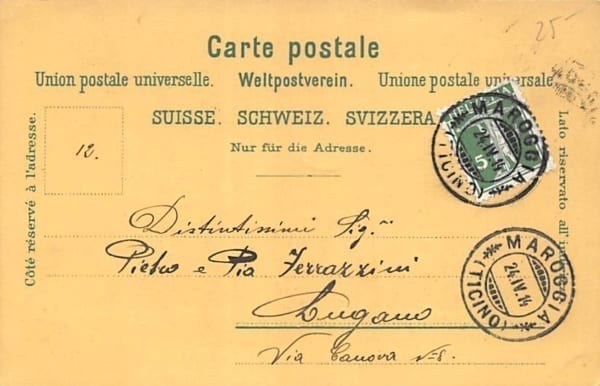 25-
Carte postale
Union postale universelle. Weltpostverein. Unione postale universale
SUISSE. SCHWEIZ. SVIZZERA.
Nur für die Adresse.
Côté réservé à l'adresse.
Lato riservato all'
12.
5
MAROGGIA
24.IV.14
(TICINO)
Distintissimi Sig.ri
Pietro e Pia Ferrazzini
Lugano
Via Canova
MAROGGIA
24.IV.14
(TICINO)